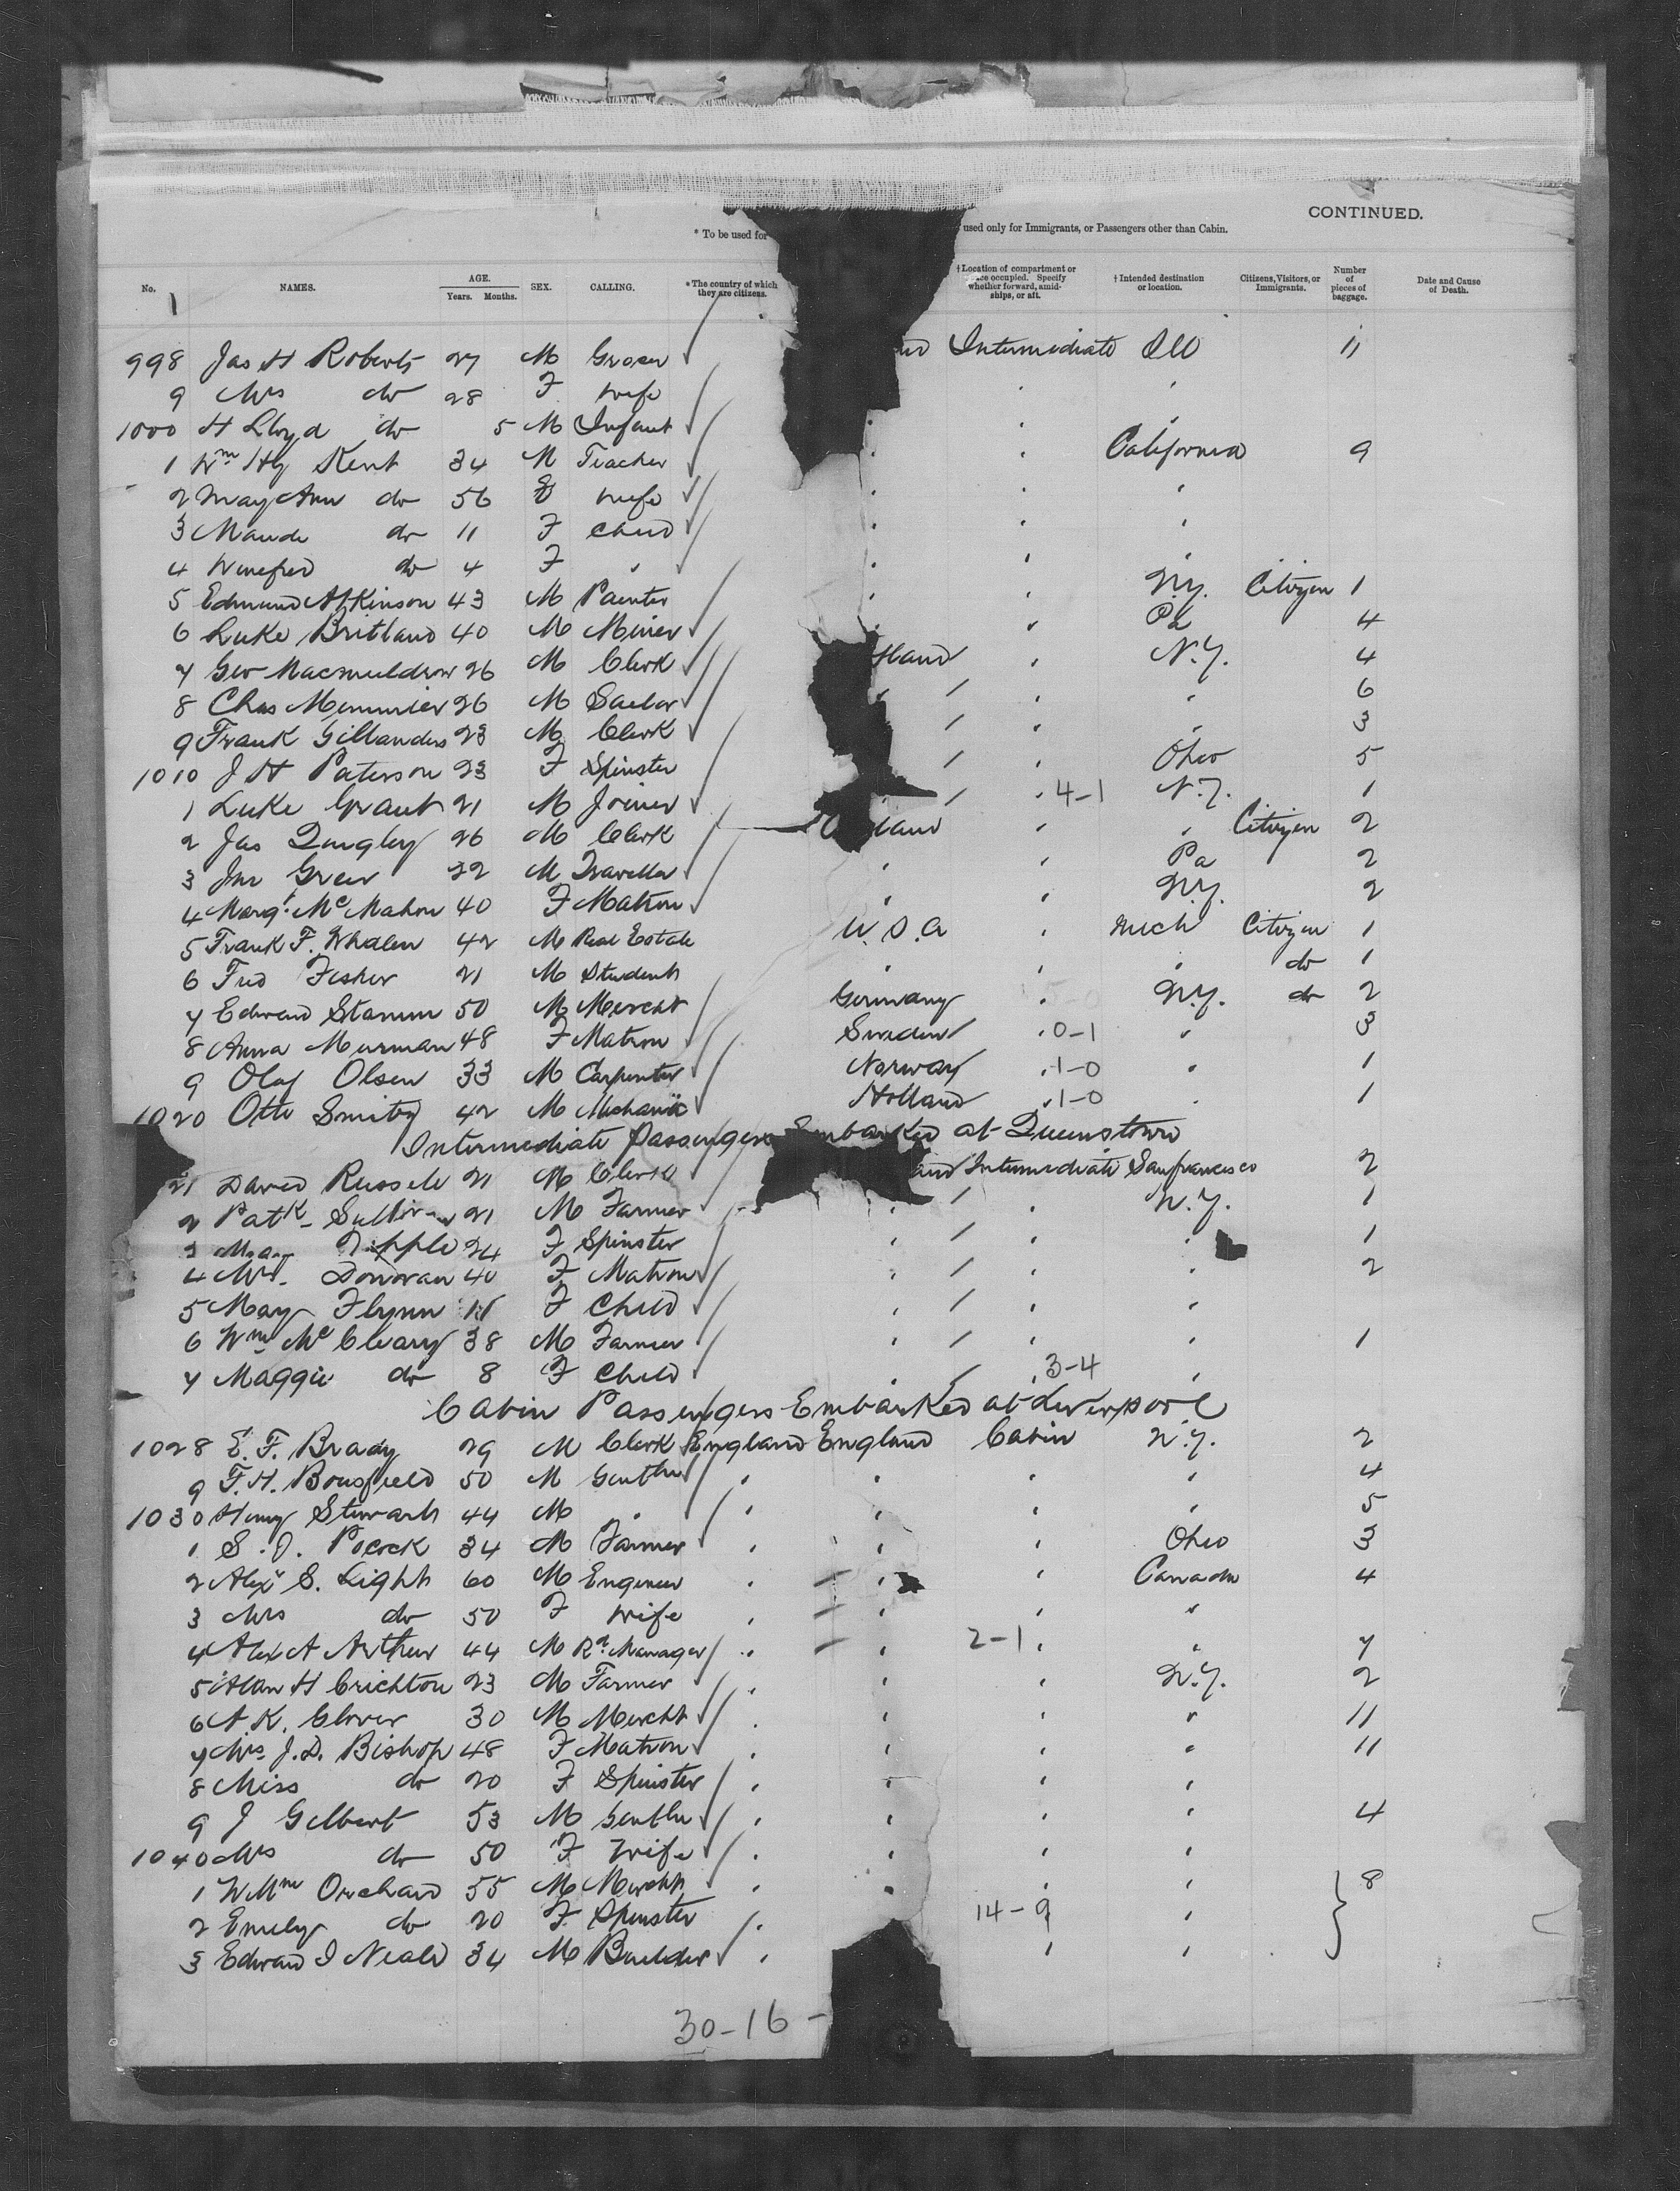 CONTINUED.
* To be used for used only for Immigrants, or Passengers other than Cabin.
No. NAMES. AGE. Years. Months. SEX. CALLING. * The country of which they are citizens. † Location of compartment or occupied. Specify whether forward, amidships, or aft. † Intended destination or location. Citizens, Visitors, or Immigrants. Number of pieces of baggage. Date and Cause of Death.
998 Jas H Roberts 27 M Grocer Intermediate Ill 11
9 Mrs do 28 F wife
1000 H Lloyd do 5 M Infant
1 Wm Hy Kent 34 M Teacher California 9
2 May Ann do 56 F wife
3 Maude do 11 F child
4 Winefred do 4 F
5 Edmund Atkinson 43 M Painter N.Y. Citizen 1
6 Luke Britland 40 M Miner Pa 4
7 Geo 26 M Clerk N.Y. 4
8 Chas 26 M Sailor 6
9 Frank Gillanders 23 M Clerk 3
1010 J H Paterson 23 F Spinster Ohio 5
1 Luke Grant 21 M Joiner 4-1 N.Y. 1
2 Jas Quigley 26 M Clerk land Citizen 2
3 Jno Greer M Traveller Pa 2
4 Margt McMahon 40 F Matron N.Y. 2
5 Frank F. Whalen 42 M Real Estate U.S.A Mich Citizen 1
6 Fred Fisher 21 M Student do 1
7 Edward Stamm 50 M Mercht Germany N.Y. do 2
8 Anna Murman 48 F Matron Sweden 0-1 3
9 Olaf Olsen 33 M Carpenter Norway 1-0 1
1020 Otto 42 M Mechanic Holland 1-0 1
Intermediate Passengers Embarked at Queenstown
21 David Russell 21 M Clerk Intermediate Sanfrancisco 2
2 Patk Sullivan 21 M Farmer N.Y. 1
3 24 F Spinster 1
4 Mrs Donovan 40 F Matron 2
5 May Flynn 11 F Child
6 Wm McCleary 38 M Farmer 1
7 Maggie do 8 F Child 3-4
Cabin Passengers Embarked at Liverpool
1028 E. F. Brady 29 M Clerk England England Cabin N.Y. 2
9 F. H. Bousfield 50 M Gentln 4
1030 Henry Stewart 44 M 5
1 S. J. Pocock 34 M Farmer Ohio 3
2 Alexr S. Light 60 M Engineer Canada 4
3 Mrs do 50 F wife
4 Alex A Arthur 44 M Manager 2-1 7
5 Alan H Crichton 23 M Farmer N.Y. 2
6 A. K. Glover 30 M Mercht 11
7 Mrs J. D. Bishop 48 F Matron 11
8 Miss do 20 F Spinster
9 J Gilbert 53 M Gentln 4
1040 Mrs do 50 F Wife
1 Orchard 55 M Mercht 8
2 Emily do 20 F Spinster 14-9
3 Edward J Neale 34 M Builder
30-16-